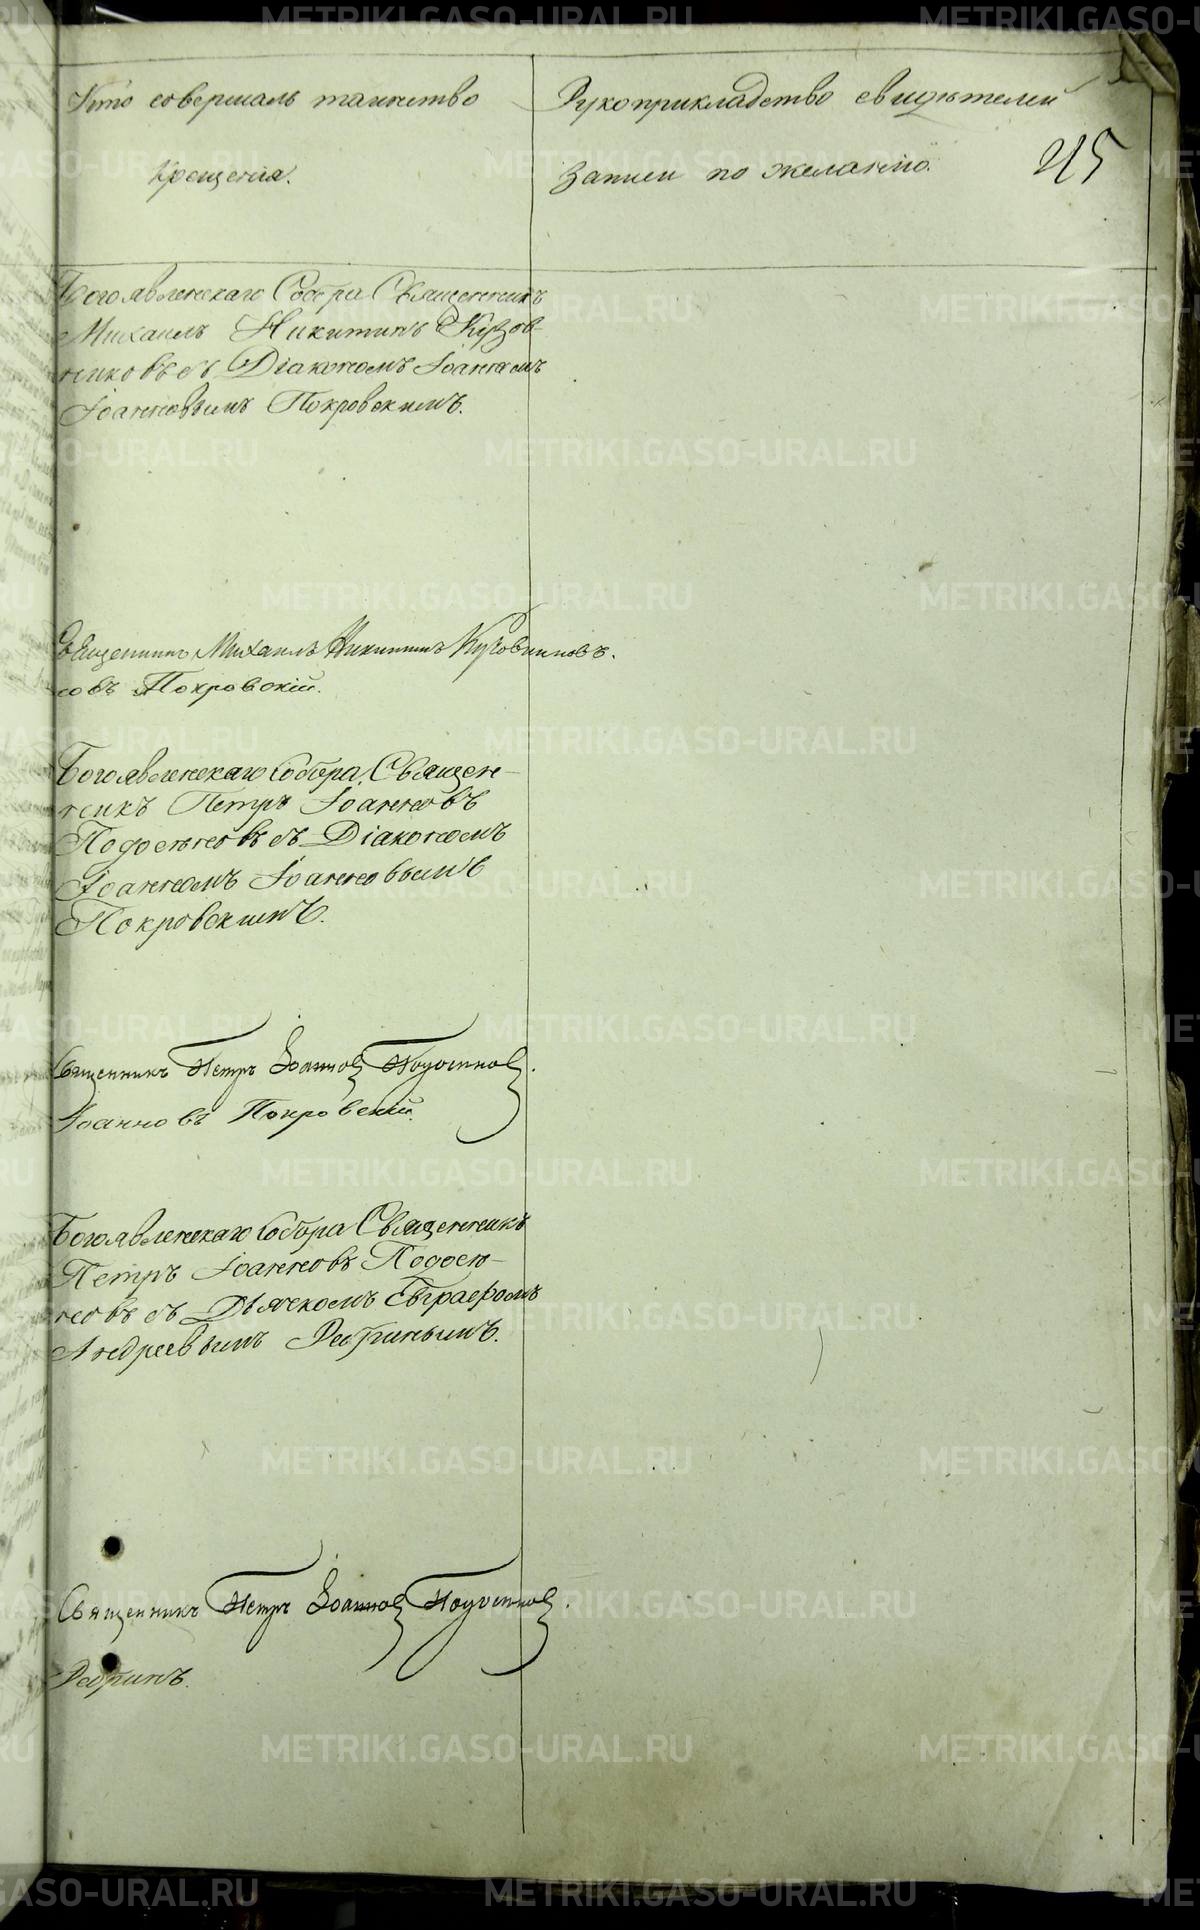 Кто совершалъ таинство
Крещенія.
Рукоприкладство свидѣтелей
записи по желанію.
215
Богоявленскаго Собора Священникъ
Михаилъ Никитинъ Кузов-
никовъ съ Діакономъ Іоанномъ
Іоанновымъ Покровскимъ.
Священникъ Михаилъ Никитинъ Кузовниковъ.
совъ Покровскій.
Богоявленскаго Собора Священ-
никъ Петръ Іоанновъ
Подосеновъ съ Діакономъ
Іоанномъ Іоанновымъ
Покровскимъ.
Священникъ Петръ Іоанновъ Подосеновъ.
Іоанновъ Покровскій.
Богоявленскаго Собора Священникъ
Петръ Іоанновъ Подосе-
новъ съ Дьячкомъ Евграфомъ
Андреевымъ Ребринымъ.
Священникъ Петръ Іоанновъ Подосеновъ.
Ребринъ.
METRIKI.GASO-URAL.RU